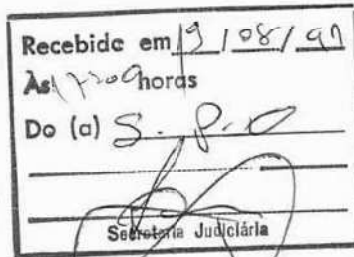 Recebido em 19/08/97
Às 17:00 horas
Do (a) S.P.O
Secretaria Judiciária